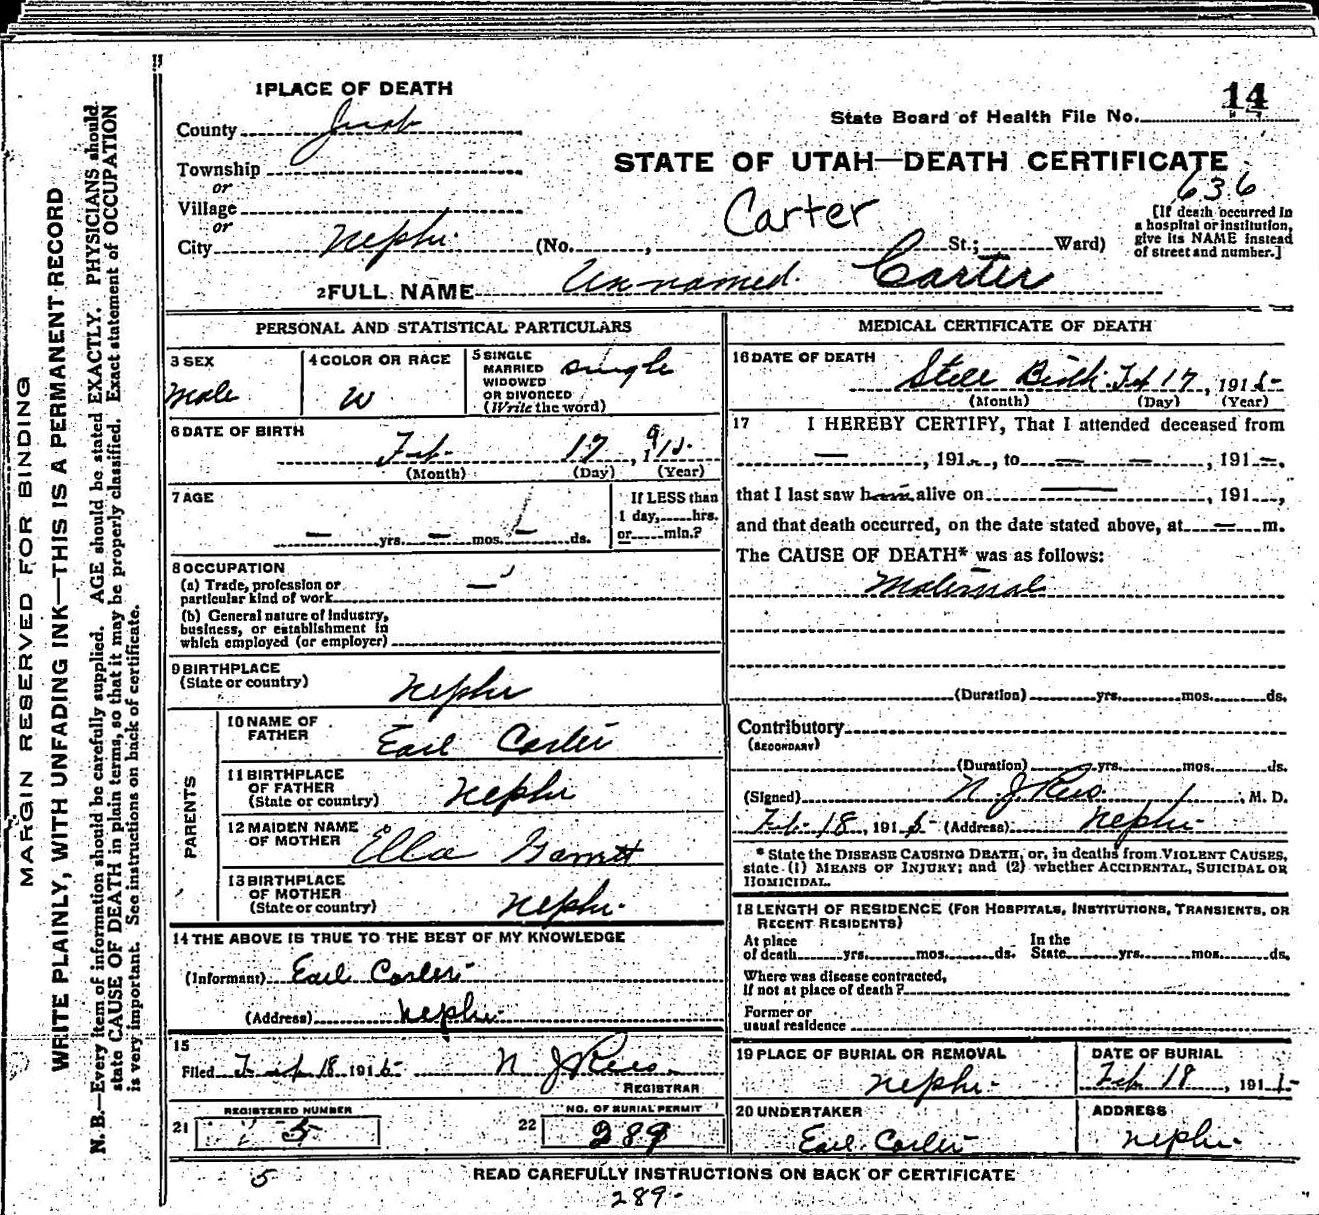 MARGIN RESERVED FOR BINDING
WRITE PLAINLY, WITH UNFADING INK—THIS IS A PERMANENT RECORD
N. B.—Every item of information should be carefully supplied. AGE should be stated EXACTLY. PHYSICIANS should
state CAUSE OF DEATH in plain terms, so that it may be properly classified. Exact statement of OCCUPATION
is very important. See instructions on back of certificate.
1 PLACE OF DEATH
County Juab
Township
or
Village
or
City Nephi (No. , St.; Ward)
14
State Board of Health File No.
STATE OF UTAH—DEATH CERTIFICATE
636
Carter
[If death occurred in
a hospital or institution,
give its NAME instead
of street and number.]
2 FULL NAME Unnamed Carter
PERSONAL AND STATISTICAL PARTICULARS
3 SEX
Male
4 COLOR OR RACE
W
5 SINGLE
MARRIED
WIDOWED
OR DIVORCED
(Write the word)
Single
6 DATE OF BIRTH
Feb. 17, 1915
(Month) (Day) (Year)
7 AGE
— yrs. — mos. ds.
If LESS than
1 day, hrs.
or min.?
8 OCCUPATION
(a) Trade, profession or
particular kind of work —
(b) General nature of industry,
business, or establishment in
which employed (or employer)
9 BIRTHPLACE
(State or country)
Nephi
PARENTS
10 NAME OF
FATHER
Earl Carter
11 BIRTHPLACE
OF FATHER
(State or country)
Nephi
12 MAIDEN NAME
OF MOTHER
Ella Garrett
13 BIRTHPLACE
OF MOTHER
(State or country)
Nephi
14 THE ABOVE IS TRUE TO THE BEST OF MY KNOWLEDGE
(Informant) Earl Carter
(Address) Nephi
15
Filed Feb 18 1915 N J Rees
REGISTRAR
21 REGISTERED NUMBER
5
22 NO. OF BURIAL PERMIT
289
MEDICAL CERTIFICATE OF DEATH
16 DATE OF DEATH
Still Birth Feb 17, 1915
(Month) (Day) (Year)
17 I HEREBY CERTIFY, That I attended deceased from
—, 191 , to — —, 191—,
that I last saw h alive on —, 191 ,
and that death occurred, on the date stated above, at — m.
The CAUSE OF DEATH* was as follows:
Maternal
(Duration) yrs. mos. ds.
Contributory
(SECONDARY)
(Duration) yrs. mos. ds.
(Signed) N. J. Rees, M. D.
Feb. 18, 1915 (Address) Nephi
* State the DISEASE CAUSING DEATH, or, in deaths from VIOLENT CAUSES,
state (1) MEANS OF INJURY; and (2) whether ACCIDENTAL, SUICIDAL OR
HOMICIDAL.
18 LENGTH OF RESIDENCE (FOR HOSPITALS, INSTITUTIONS, TRANSIENTS, OR
RECENT RESIDENTS)
At place
of death yrs. mos. ds.
In the
State yrs. mos. ds.
Where was disease contracted,
If not at place of death?
Former or
usual residence
19 PLACE OF BURIAL OR REMOVAL
Nephi
DATE OF BURIAL
Feb 18, 1915
20 UNDERTAKER
Earl Carter
ADDRESS
Nephi
READ CAREFULLY INSTRUCTIONS ON BACK OF CERTIFICATE
5
289